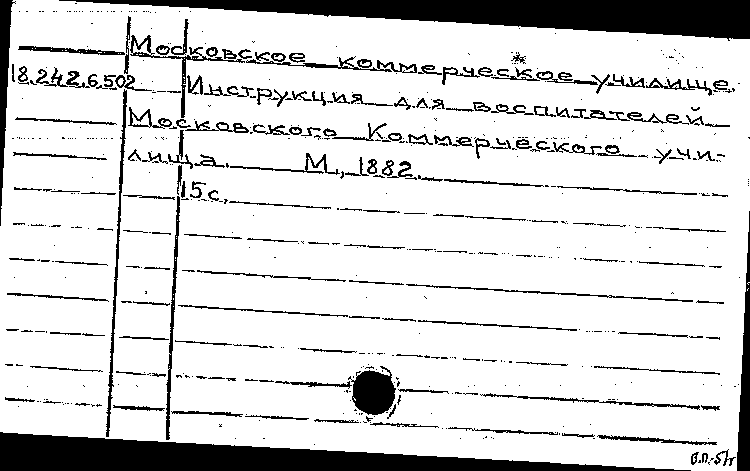 Московское коммерческое училище.
18.242.6.502 Инструкция для воспитателей
Московского Коммерческого учи-
лища. М., 1882.
15 с.